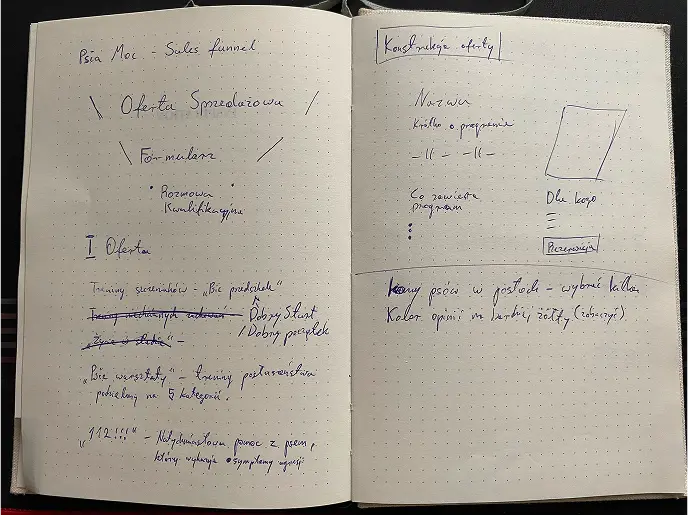 Psia Moc - Sales funnel
Oferta Sprzedażowa
Formularz
• Rozmowa •
Kwalifikacyjna
I Oferta
Treningi szczeniaków - „Bic przedszkole"
Dobry Start
/ Dobry początek
„Bic warsztaty" - treningi posłuszeństwa
podzielimy na 5 kategorii.
„112!!!" - Natychmiastowa pomoc z psem,
który wykazuje symptomy agresji
Konstrukcja oferty
Nazwa
Krótko o programie
-||- -||-
Co zawiera
program
Dla kogo
Rezerwacja
psów w postach - wybrać kilka
Kolor opinii na żółty (zobaczyć)